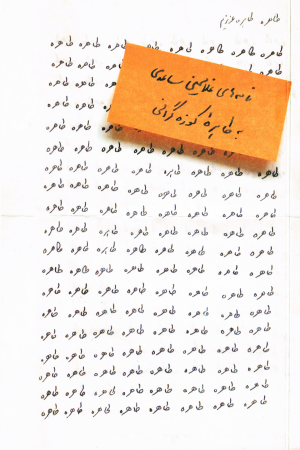 طاهره طاهره عزیزم
طاهره طاهره طاهره طاهره طاهره طاهره طاهره طاهره
طاهره طاهره طاهره
طاهره طاهره
نامه‌های غلامحسین ساعدی
به طاهرهٔ کوزه‌گرانی
طاهره طاهره
طاهره طاهره
طاهره طاهره طاهره طاهره طاهره طاهره
طاهره طاهره طاهره طاهره طاهره طاهره طاهره طاهره
طاهره طاهره طاهره طاهره طاهره طاهره طاهره طاهره
طاهره طاهره طاهره طاهره طاهره طاهره طاهره طاهره
طاهره طاهره طاهره طاهره طاهره طاهره طاهره طاهره
طاهره طاهره طاهره طاهره طاهره طاهره طاهره طاهره
طاهره طاهره طاهره طاهره طاهره طاهره طاهره طاهره
طاهره طاهره طاهره طاهره طاهره طاهره طاهره طاهره
طاهره طاهره طاهره طاهره طاهره طاهره طاهره طاهره
طاهره طاهره طاهره طاهره طاهره طاهره طاهره طاهره
طاهره طاهره طاهره طاهره طاهره طاهره طاهره طاهره
طاهره طاهره طاهره طاهره طاهره طاهره طاهره طاهره
طاهره طاهره طاهره طاهره طاهره طاهره طاهره طاهره
طاهره طاهره طاهره طاهره طاهره طاهره طاهره طاهره